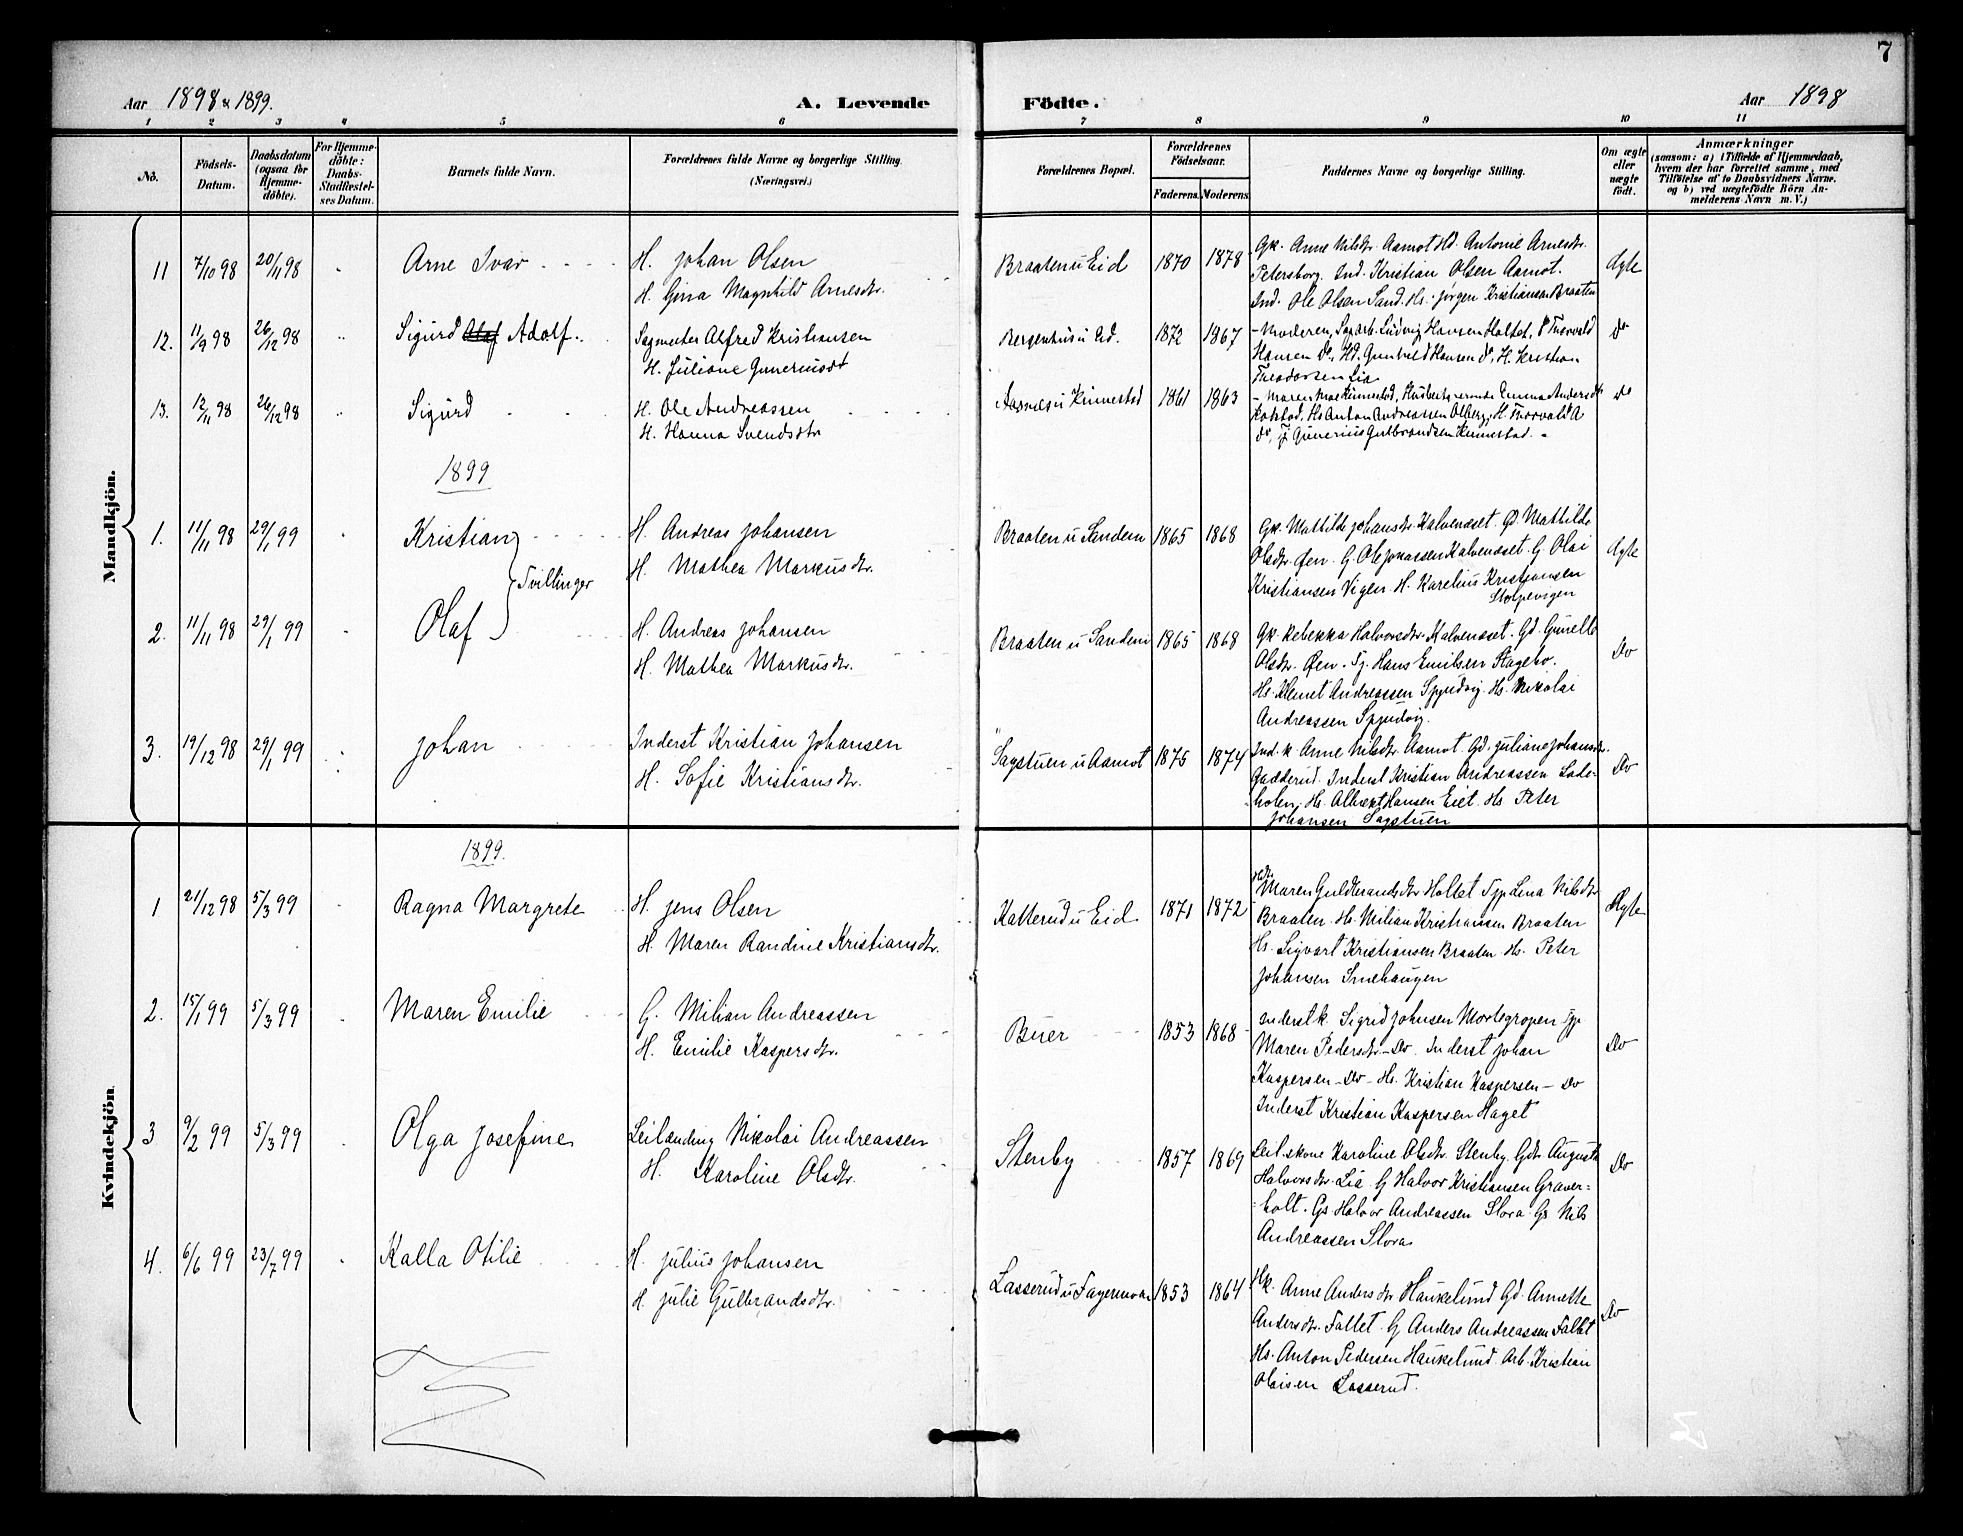 7
Aar 1898 & 1899. A. Levende Födte. Aar 1898
1 2 3 4 5 6 7 8 9 10 11
No.
Födsels-
Datum.
Daabsdatum
(ogsaa for
Hjemme-
döbte).
For Hjemme-
döbte:
Daabs-
Stadfæstel-
ses Datum.
Barnets fulde Navn.
Forældrenes fulde Navne og borgerlige Stilling.
(Næringsvei.)
Forældrenes Bopæl.
Forældrenes
Födselsaar.
Faderens. Moderens
Faddernes Navne og borgerlige Stilling.
Om ægte
eller
uægte
födt.
Anmærkninger
(saasom: a) i Tilfælde af Hjemmedaab,
hvem der har forrettet samme, med
Tilföielse af to Daabsvidners Navne.
og b) ved uægtefödte Börn An-
melderens Navn m. V.)
Mandkjön.
11 7/10 98 20/11 98 Arne Ivar
H. Johan Olsen
H. Gina Magnhild Arnesdtr.
Braaten u Eid 1870 1878
Gk. Anne Nilsdtr. Aamot Hd. Antonie Arnesdtr.
Petersborg. Ind. Kristian Olsen Aamot.
Ind. Ole Olsen Sand. Hs. Jørgen Kristiansen Braaten
Ægte
12. 11/9 98 26/12 98 Sigurd Olaf Adolf.
Sagmester Alfred Kristiansen
H. Juliane Gunerius dt
Bergenhus u Ed. 1872 1867
Moderen, Sagarb. Ludvig Hansen Holtet, Thorvald
Hansen do, Hd. Gunhild Hansen do, H. Kristian
Theodorsen Lia
do
13. 12/11 98 26/12 98 Sigurd
H. Ole Andreassen
H. Hanna Svendsdtr
Aasnes u Kinnestad 1861 1863
Maren Moe Kinnestad, Emma Andersdt
Kokstad, Hs Anton Andreassen Olberg, H. Thorvald A
do, Gunerius Gulbrandsen Kinnestad.
do
1899
1. 11/11 98 29/1 99 Kristian
H. Andreas Johansen
H. Mathea Markusdtr.
Braaten u Sandem 1865 1868
Gk. Mathilde Johansdtr. Kalvenæset. Gd Mathilde
Olsdtr. Øen. G. Ole Jonassen Kalvenæset G. Olai
Kristiansen Vigen. H. Karelius Kristiansen
Stolpevigen
Ægte
Tvillinger
2. 11/11 98 29/1 99 Olaf
H. Andreas Johansen
H. Mathea Markusdtr.
Braaten u Sandem 1865 1868
Gk. Rebekka Halvorsdtr. Kalvenæset. Gd. Gunelle
Olsdtr. Øen. Tj. Hans Emilsen Stagebo.
Hs. Klemet Andreassen Spydvig. Hs. Nikolai
Andreassen Spydvig.
Do
3. 19/12 98 29/1 99 Johan
Inderst Kristian Johansen
H. Sofie Kristiansdtr.
Sagstuen u Aamot 1875 1874
Ind. k Anne Nilsdtr. Aamot. Gd. Juliane Johansdtr.
Gædderud. Inderst Kristian Andreassen Lade-
holen. Hs. Albert Hansen Eiet. Hs Peter
Johansen Sagstuen
Do
Kvindekjön
1899.
1 21/12 98 5/3 99 Ragna Margrete
H. Jens Olsen
H. Maren Randine Kristiansdtr.
Katterud u Eid 1871 1872
Maren Guldbrandsdtr Holtet Tjp Lena Nilsdtr
Braaten. Hs Milian Kristiansen Braaten
Hs. Sigvart Kristiansen Braaten. Hs. Peter
Johansen Smehaugen
Ægte
2. 15/1 99 5/3 99 Maren Emilie
G. Milian Andreassen
H. Emilie Kaspersdtr.
Buer 1853 1868
Inderstk. Sigrid Johnsen Mortegropen Tjp
Maren Pedersdtr – Do. Inderst Johan
Kaspersen – Do – Hs. Kristian Kaspersen – Do
Inderst Kristian Kaspersen Haget
Do
3 9/2 99 5/3 99 Olga Josefine
Leilænding Nikolai Andreassen
H. Karoline Olsdtr.
Stenby 1857 1869
Leil. kone Karoline Olsdtr. Stenby. Gdtr. Augusta
Halvorsdtr. Lie. G Halvor Kristiansen Graver-
holt. Gs. Halvor Andreassen Slora. Gs Nils
Andreassen Slora
Do
4. 6/6 99 23/7 99 Kalla Otilie
H. Julius Johansen
H. Julie Gulbrandsdtr.
Lasserud u Fagermoen 1853 1864
Hk. Anne Andersdtr Haukelund Gd. Annette
Andersdtr. Fallet. G Anders Andreassen Fallet
Hs. Anton Pedersen Haukelund. Arb. Kristian
Olaisen Lasserud.
Do